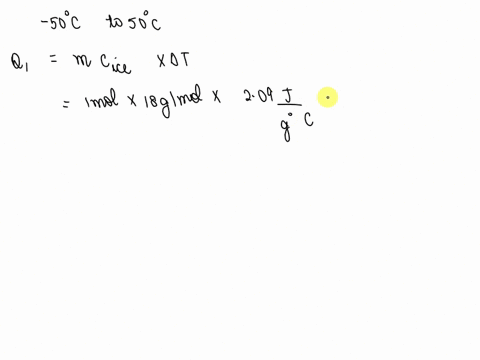 -50°C to 50°C
Q₁ = m C ice × ΔT
= 1mol × 18g/mol × 2.09 J/g°C